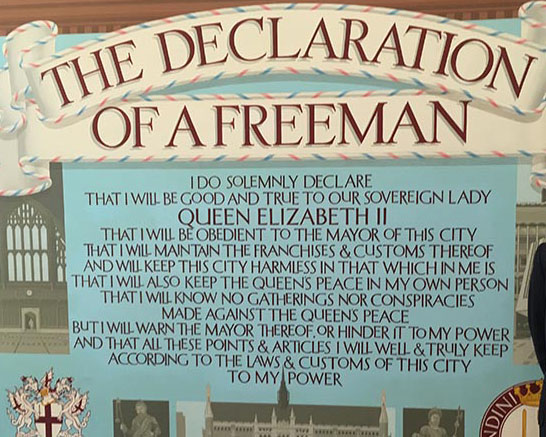 THE DECLARATION
OF A FREEMAN
I DO SOLEMNLY DECLARE
THAT I WILL BE GOOD AND TRUE TO OUR SOVEREIGN LADY
QUEEN ELIZABETH II
THAT I WILL BE OBEDIENT TO THE MAYOR OF THIS CITY
THAT I WILL MAINTAIN THE FRANCHISES & CUSTOMS THEREOF
AND WILL KEEP THIS CITY HARMLESS IN THAT WHICH IN ME IS
THAT I WILL ALSO KEEP THE QUEEN'S PEACE IN MY OWN PERSON
THAT I WILL KNOW NO GATHERINGS NOR CONSPIRACIES
MADE AGAINST THE QUEENS PEACE
BUT I WILL WARN THE MAYOR THEREOF, OR HINDER IT TO MY POWER
AND THAT ALL THESE POINTS & ARTICLES I WILL WELL & TRULY KEEP
ACCORDING TO THE LAWS & CUSTOMS OF THIS CITY
TO MY POWER